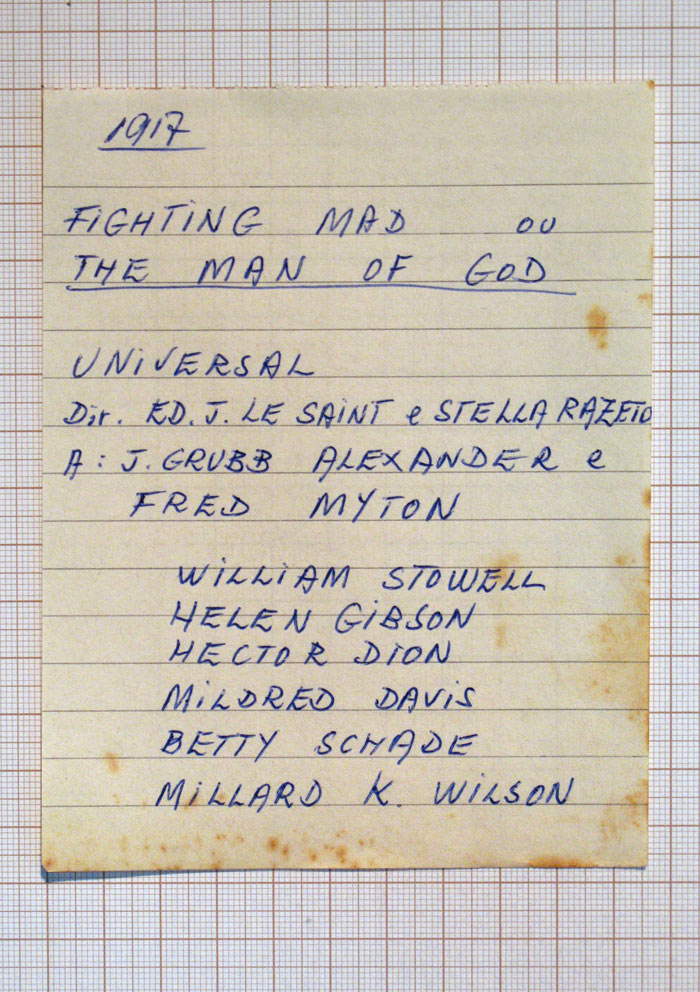 1917
FIGHTING MAD ou
THE MAN OF GOD
UNIVERSAL
Dir. ED. J. LE SAINT e STELLA RAZETO
A: J. GRUBB ALEXANDER e
FRED MYTON
WILLIAM STOWELL
HELEN GIBSON
HECTOR DION
MILDRED DAVIS
BETTY SCHADE
MILLARD K. WILSON